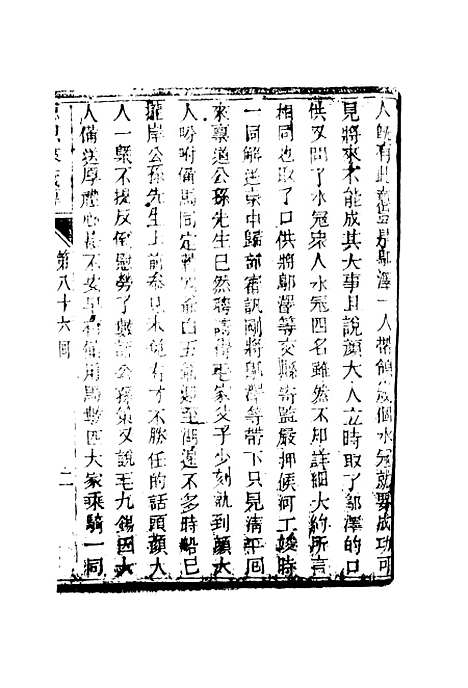 人既有此義豈是鄔澤一人帶領幾個水寇就要成功可
見將來不能成其大事且說顏大人立時取了鄔澤的口
供又問了水寇眾人水寇四名雖然不知詳細大約所言
相同也取了口供將鄔澤等交縣寄監嚴押候河工竣時
一同解送京中歸部審訊剛將鄔澤等帶下只見清平回
來稟道公孫先生已然聘請得毛家父子少刻就到顏大
人吩咐備馬同定
迎至湖邊不多時船已
攏岸公孫先生上前參見未免有才不勝任的話頭顏大
人一槩不提反倒慰勞了數語公孫策又說毛九錫因大
人備送厚禮心甚不安早
備用馬數匹大家乘騎一同
第八十六回
二